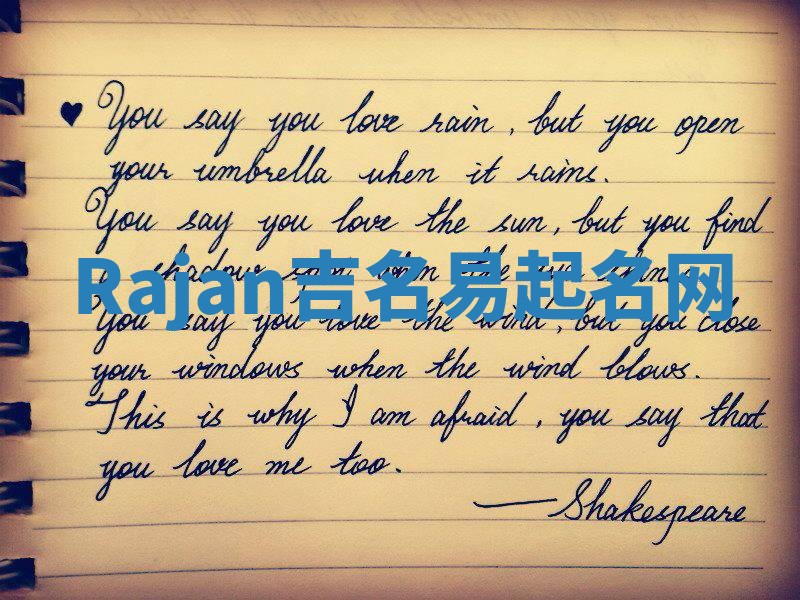 You say you love rain, but you open
your umbrella when it rains.
You say you love the sun, but you find
a shadow spot when the sun shines.
Rajan吉名易起名网
You say you love the wind, but you close
your windows when the wind blows.
This is why I am afraid, you say that
you love me too.
—Shakespeare